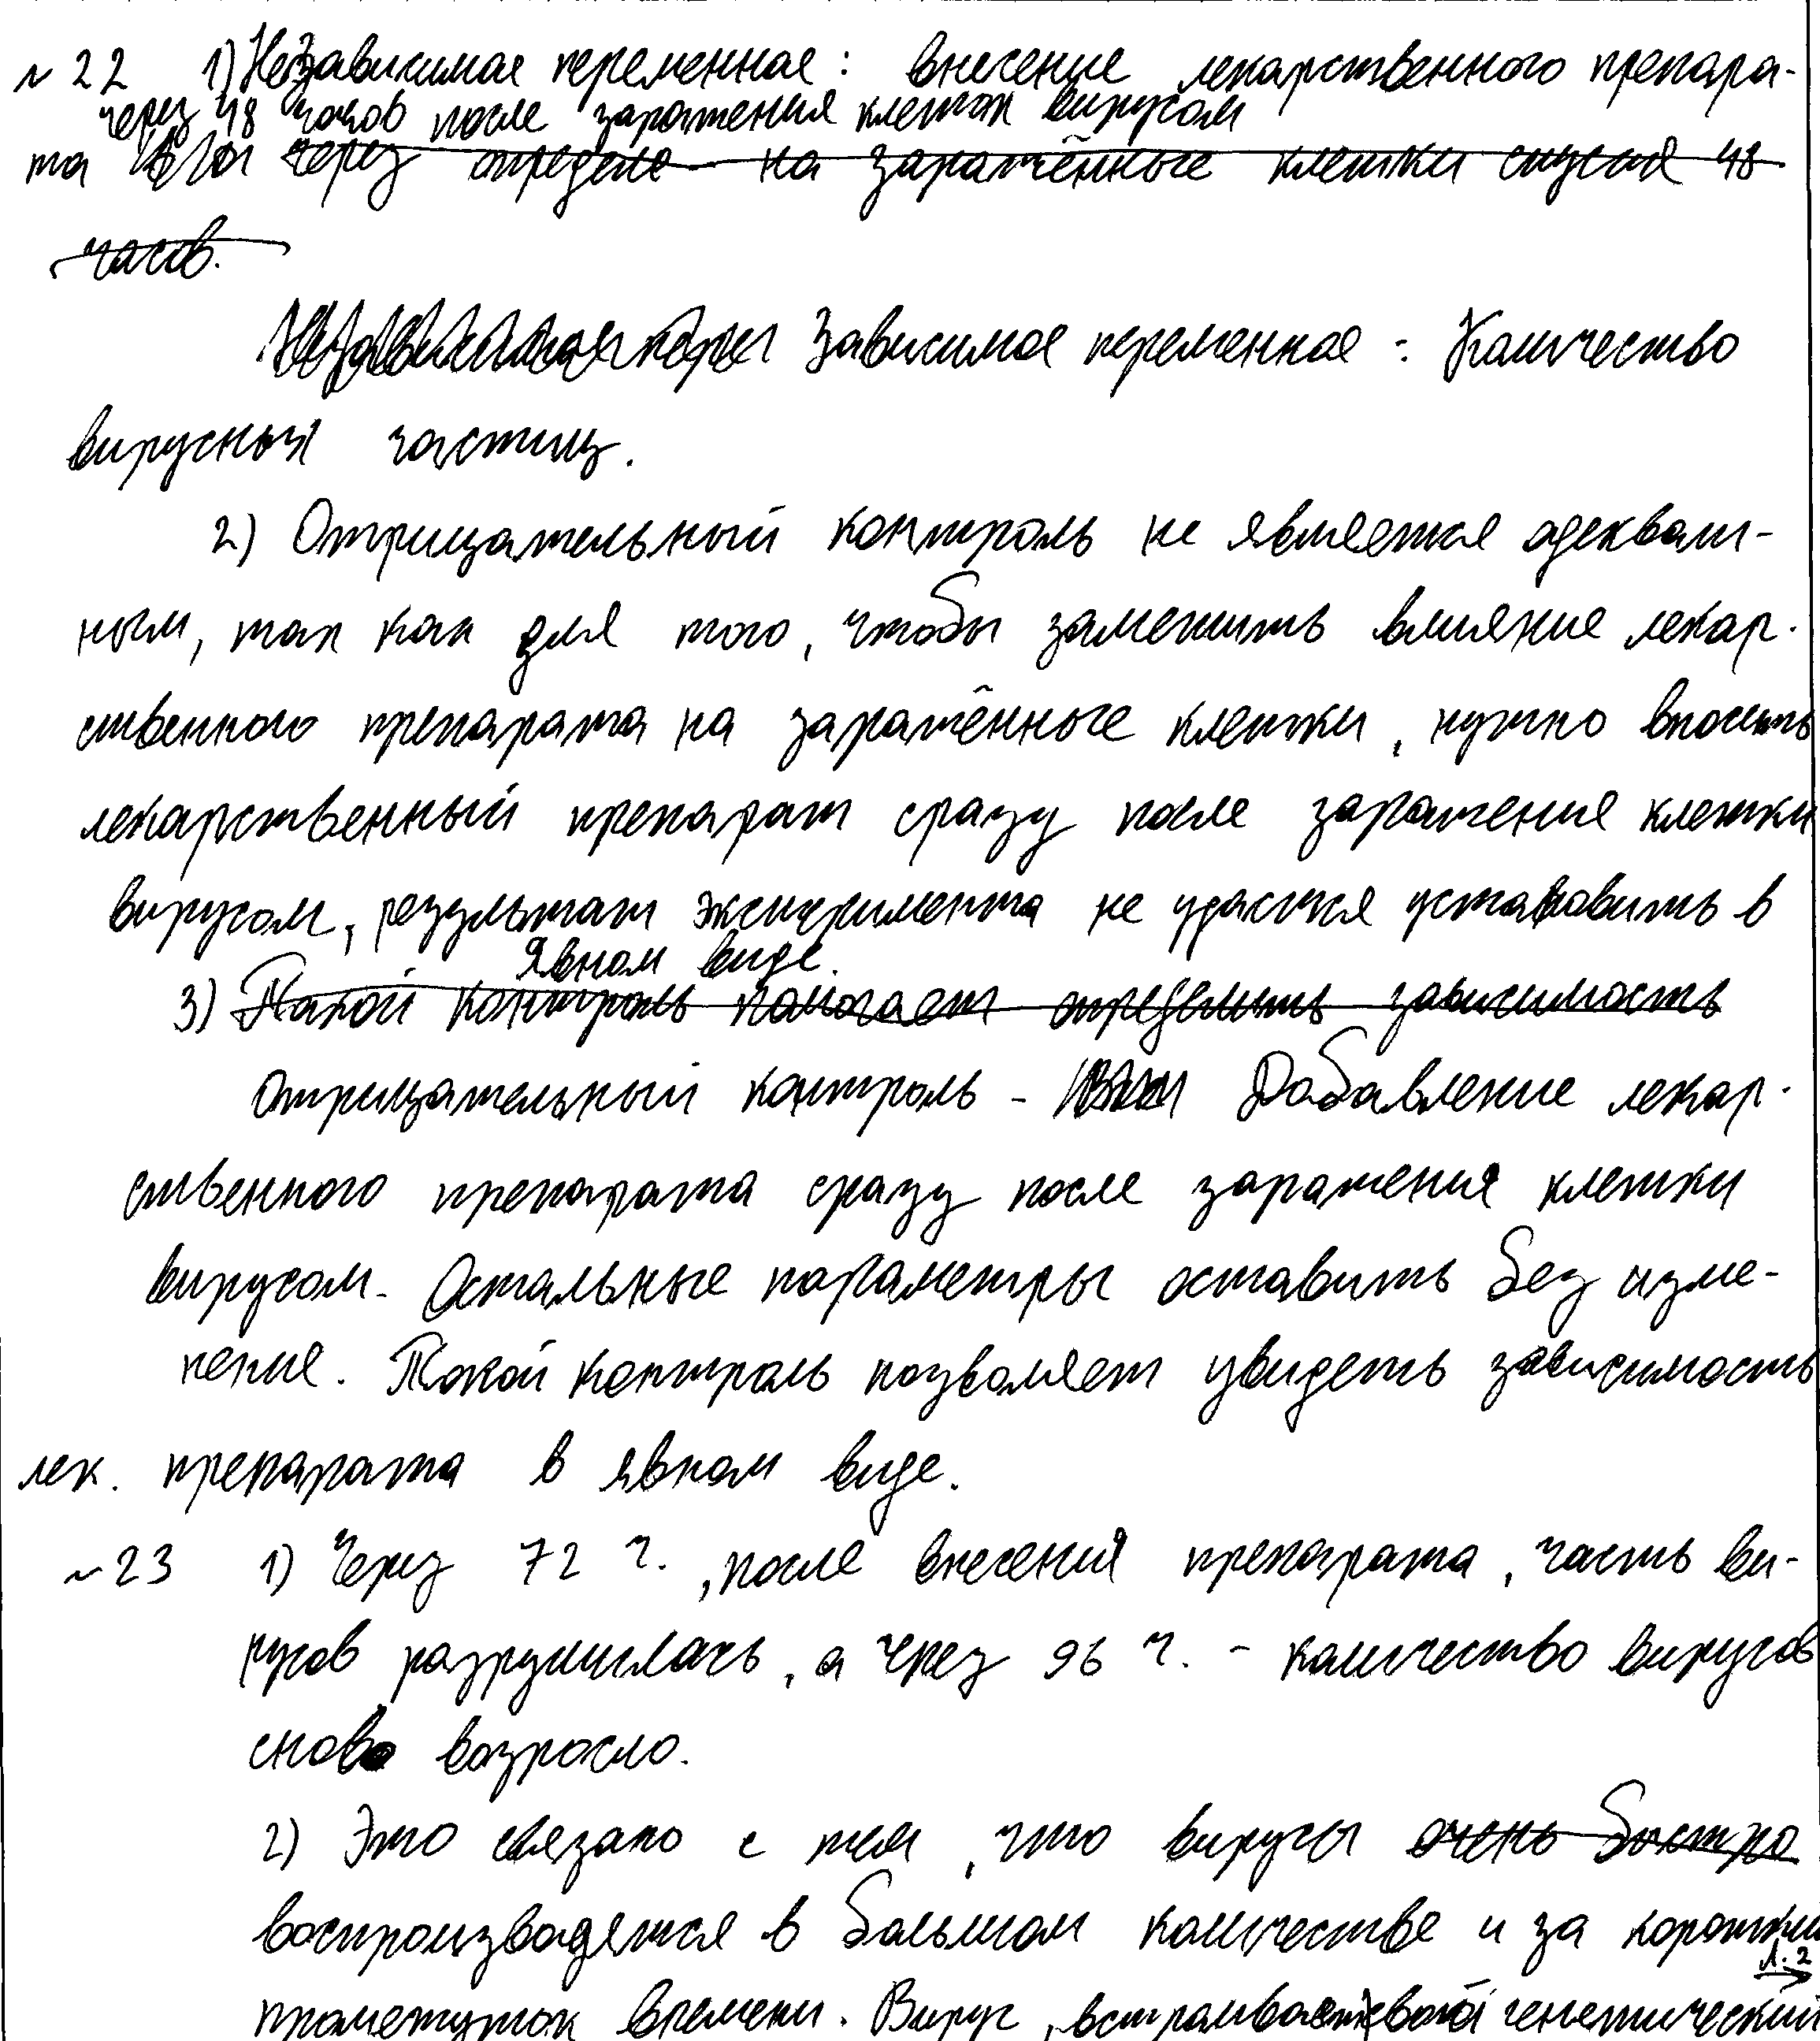 №22 1) Независимая переменная: внесение лекарственного препара-
через 48 часов после заражения клеток вирусом
та через определе на заражённые клетки спустя 48
часов.
Зависимая переменная: Количество
вирусных частиц.
2) Отрицательный контроль не является адекват-
ным, так как для того, чтобы заметить влияние лекар-
ственного препарата на заражённые клетки, нужно вносить
лекарственный препарат сразу после заражения клетки
вирусом, результат эксперимента не удастся установить в
явном виде.
3) Такой контроль помогает определить зависимость
Отрицательный контроль - Добавление лекар-
ственного препарата сразу после заражения клетки
вирусом. Остальные параметры оставить без изме-
нения. Такой контроль позволяет увидеть зависимость
лек. препарата в явном виде.
№23 1) Через 72 ч., после внесения препарата, часть ви-
русов разрушилась, а через 96 ч. - количество вирусов
снова возросло.
2) Это связано с тем, что вирусы очень быстро
воспроизводятся в большом количестве и за короткий
Л.2
промежуток времени. Вирус, встраивает свой генетический